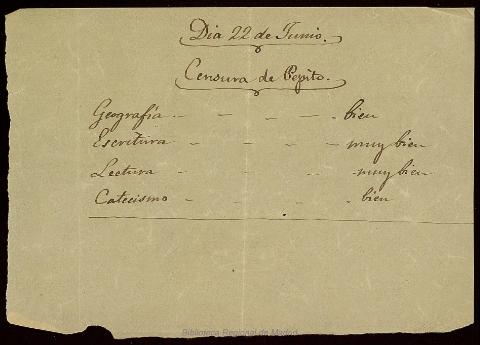 Dia 22 de Junio.
Censura de Pepito.
Geografía - - - - - bien
Escritura - - - - - muy bien
Lectura - - - - muy bien
Catecismo - - - - - bien
Biblioteca Regional de Madrid